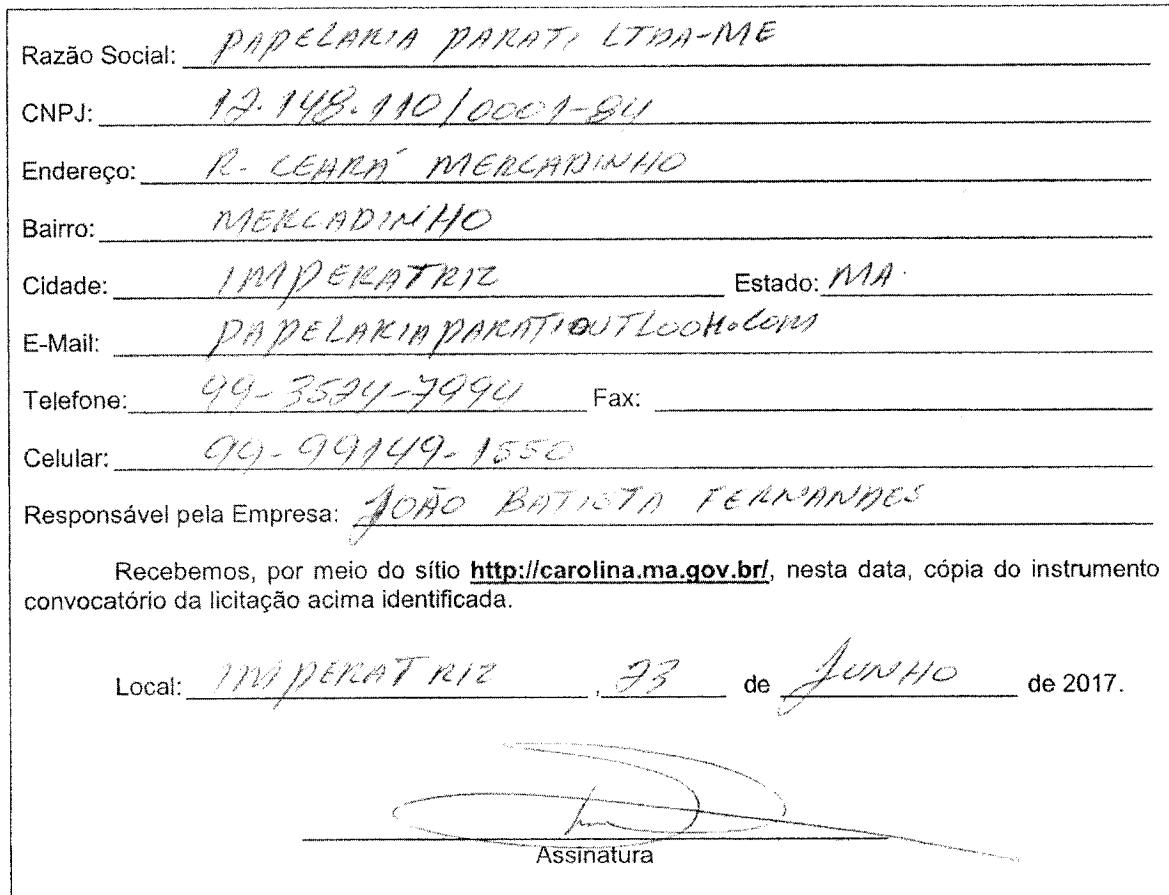 Razão Social: PAPELARIA PARATI LTDA-ME
CNPJ: 12.148.110/0001-84
Endereço: R. CEARÁ MERCADINHO
Bairro: MERCADINHO
Cidade: IMPERATRIZ Estado: MA.
E-Mail: PAPELARIAPARATIOUTLOOK.COM
Telefone: 99-3524-7994 Fax:
Celular: 99-99149-1550
Responsável pela Empresa: JOÃO BATISTA FERNANDES
Recebemos, por meio do sítio http://carolina.ma.gov.br/, nesta data, cópia do instrumento
convocatório da licitação acima identificada.
Local: IMPERATRIZ, 23 de JUNHO de 2017.
Assinatura